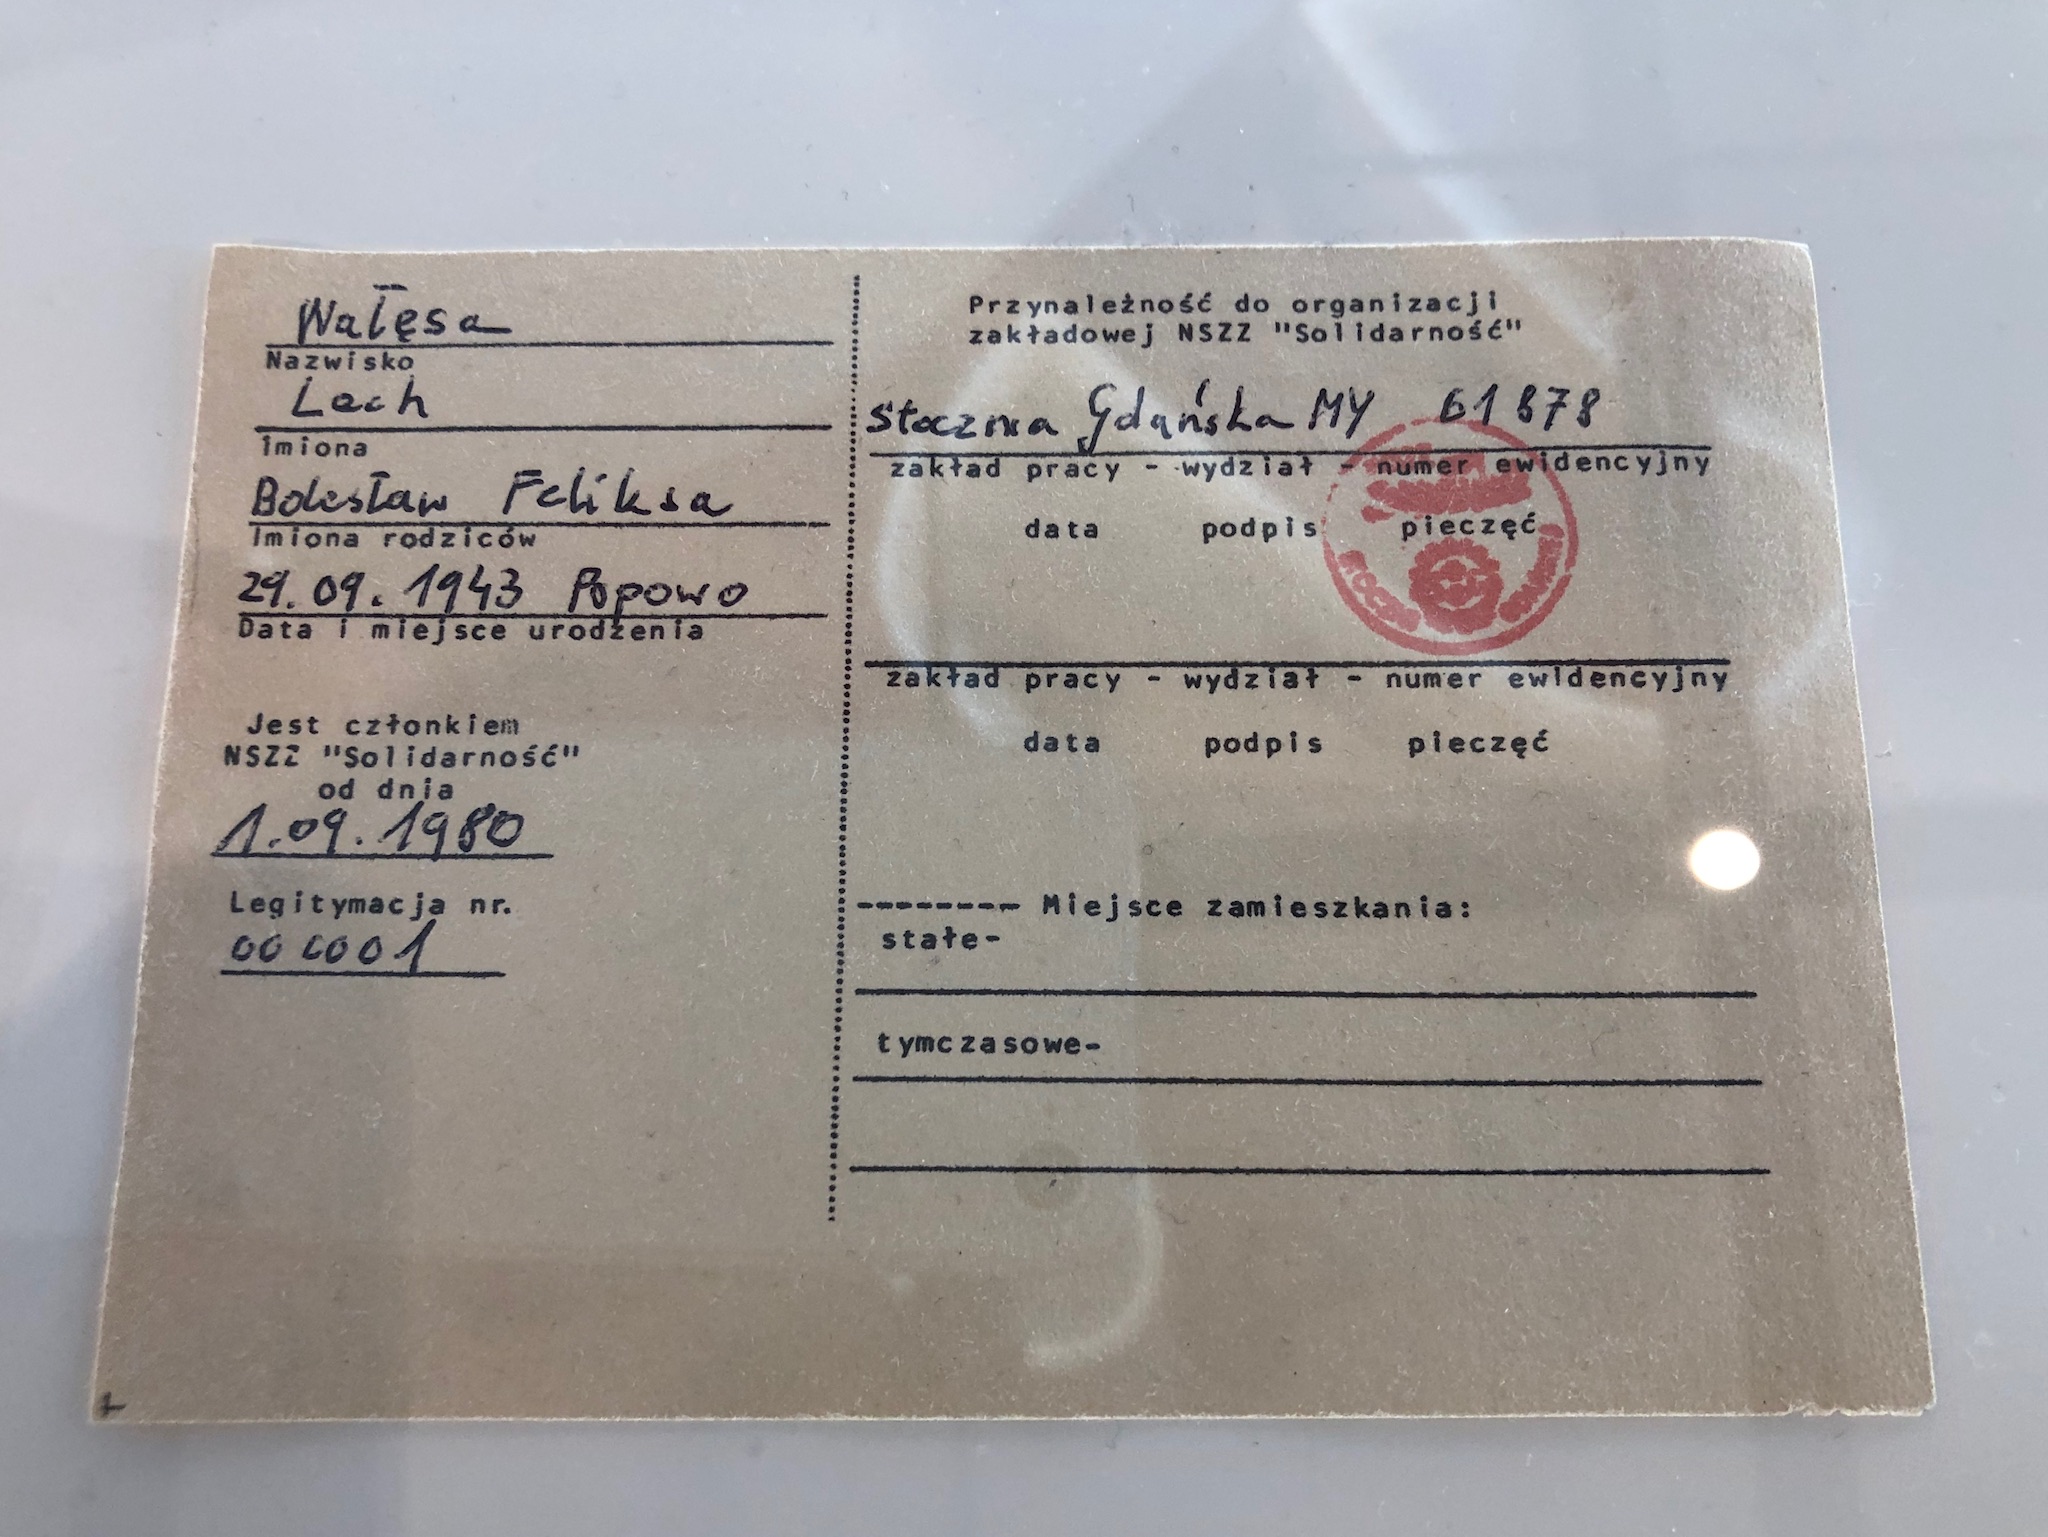 Wałęsa
Nazwisko
Lech
imiona
Bolesław Feliksa
Imiona rodziców
29.09.1943 Popowo
Data i miejsce urodzenia
Jest członkiem
NSZZ "Solidarność"
od dnia
1.09.1980
Legitymacja nr.
000001
Przynależność do organizacji
zakładowej NSZZ "Solidarność"
Stocznia Gdańska MY 61878
zakład pracy - wydział - numer ewidencyjny
data podpis pieczęć
zakład pracy - wydział - numer ewidencyjny
data podpis pieczęć
-------- Miejsce zamieszkania:
stałe-
tymczasowe-